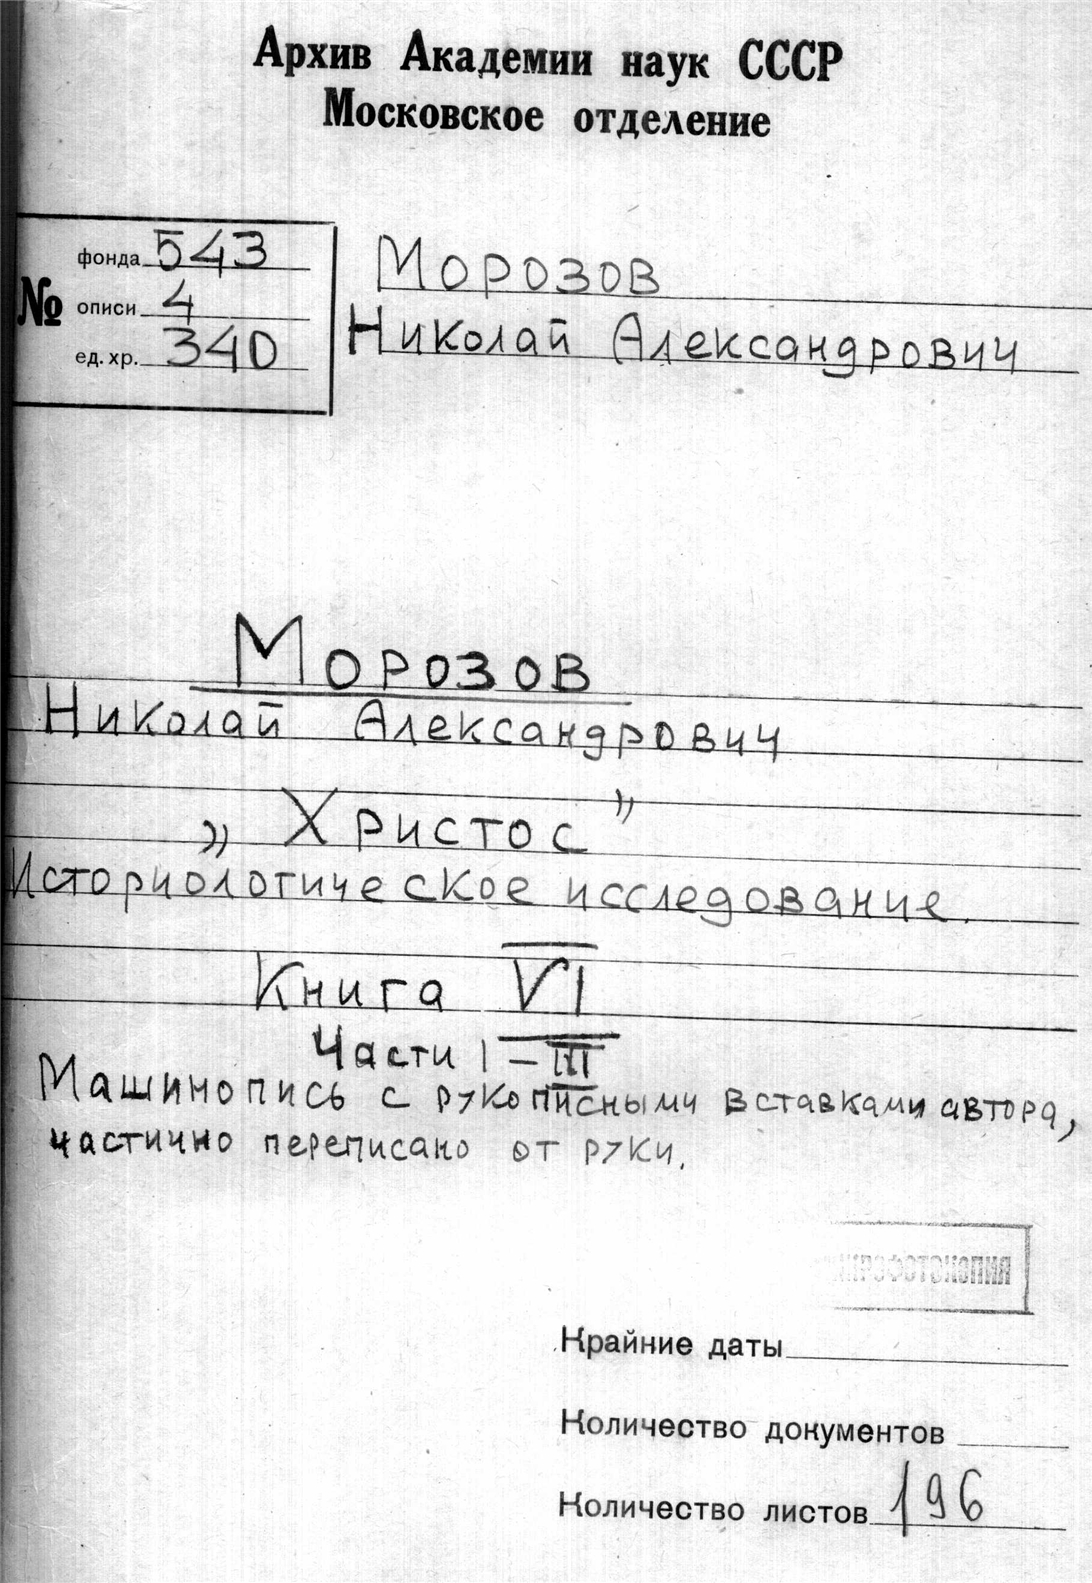 Архив Академии наук СССР
Московское отделение
№
фонда 543
описи 4
ед. хр. 340
Морозов
Николай Александрович
Морозов
Николай Александрович
„Христос”
Историологическое исследование.
Книга VI
Части I – III
Машинопись с рукописными вставками автора,
частично переписано от руки.
Крайние даты
Количество документов
Количество листов 196